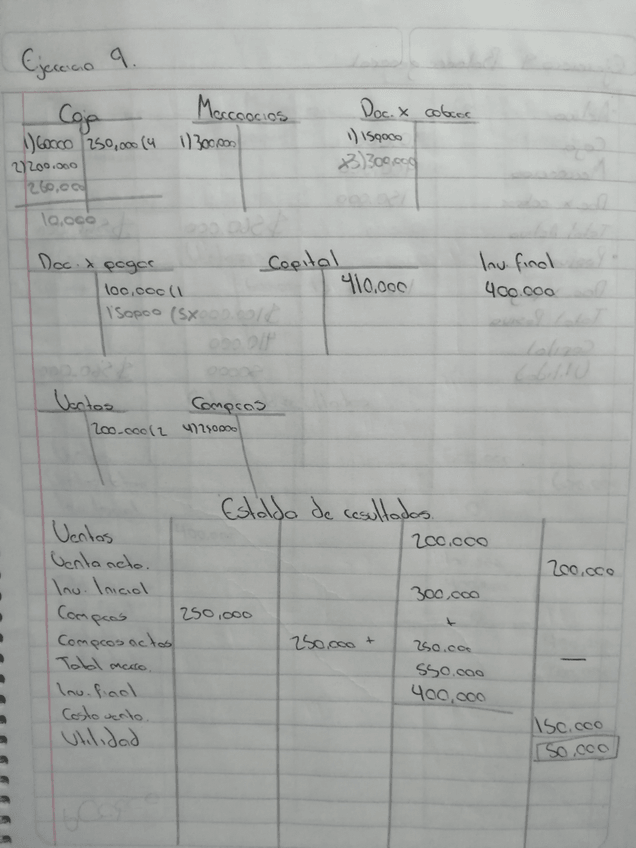 Ejercicio 9.
Caja Mercancias Doc. x cobrar
1)60000 250,000(4 1)300,000 1)150,000
2)200.000 x3)300,000
260,000
10,000
Doc. x pagar Capital Inv. final
100,000(1 410,000 400.000
150000 (5x
Ventas Compras
200.000(2 4)250000
Estaldo de resultados.
Ventas 200,000
Venta neta. 200,000
Inv. Inicial 300,000
Compras 250,000 +
Compras netas 250.000 + 250.000
Total merca. 550.000 —
Inv. final 400,000
Costo venta. 150.000
Utilidad 50.000